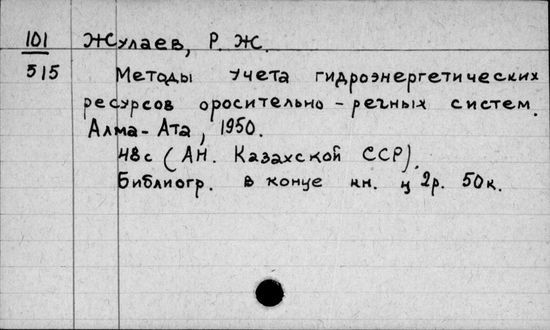 101 Жулаев, Р. Ж.
515 Методы учета гидроэнергетических
ресурсов оросительно-речных систем.
Алма-Ата, 1950.
48с (АН. Казахской ССР).
Библиогр. в конце кн. ц 2р. 50к.